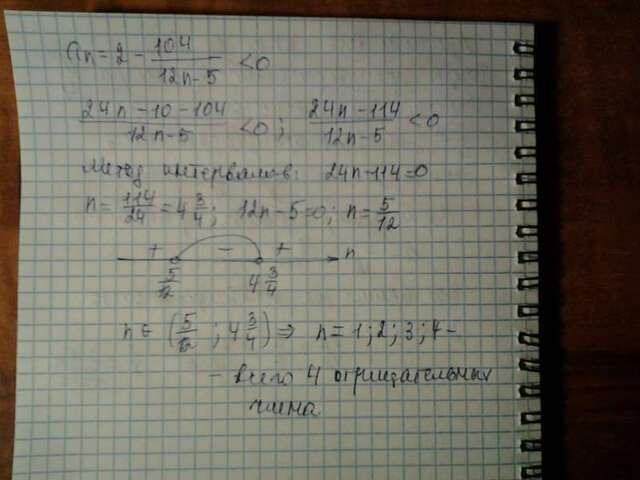 an = 2 - 104/(12n-5) < 0
(24n - 10 - 104)/(12n - 5) < 0 ; (24n - 114)/(12n - 5) < 0
Метод интервалов: 24n - 114 = 0
n = 114/24 = 4 3/4 ; 12n - 5 = 0 ; n = 5/12
+ - + n
5/12 4 3/4
n ∈ (5/12 ; 4 3/4) ⇒ n = 1 ; 2 ; 3 ; 4 -
- всего 4 отрицательных
члена